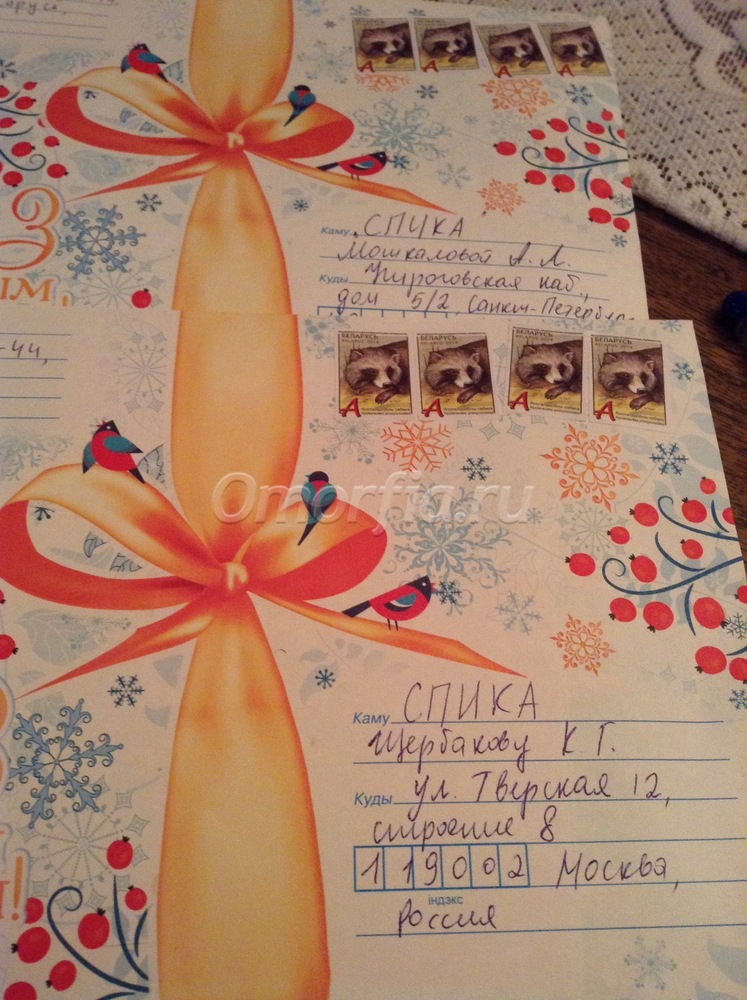 А
А
А
А
З
ЫМ,
Каму СПУКА
Мошкаловой А. Л.
Куды наб,
дом 5/2, Санкт-Петербург
БЕЛАРУСЬ
А
БЕЛАРУСЬ
А
БЕЛАРУСЬ
А
БЕЛАРУСЬ
А
Omorfia.ru
Каму СПИКА
Щербакову К Г.
Куды ул. Тверская 12,
строение 8
119002 Москва,
індэкс
Россия